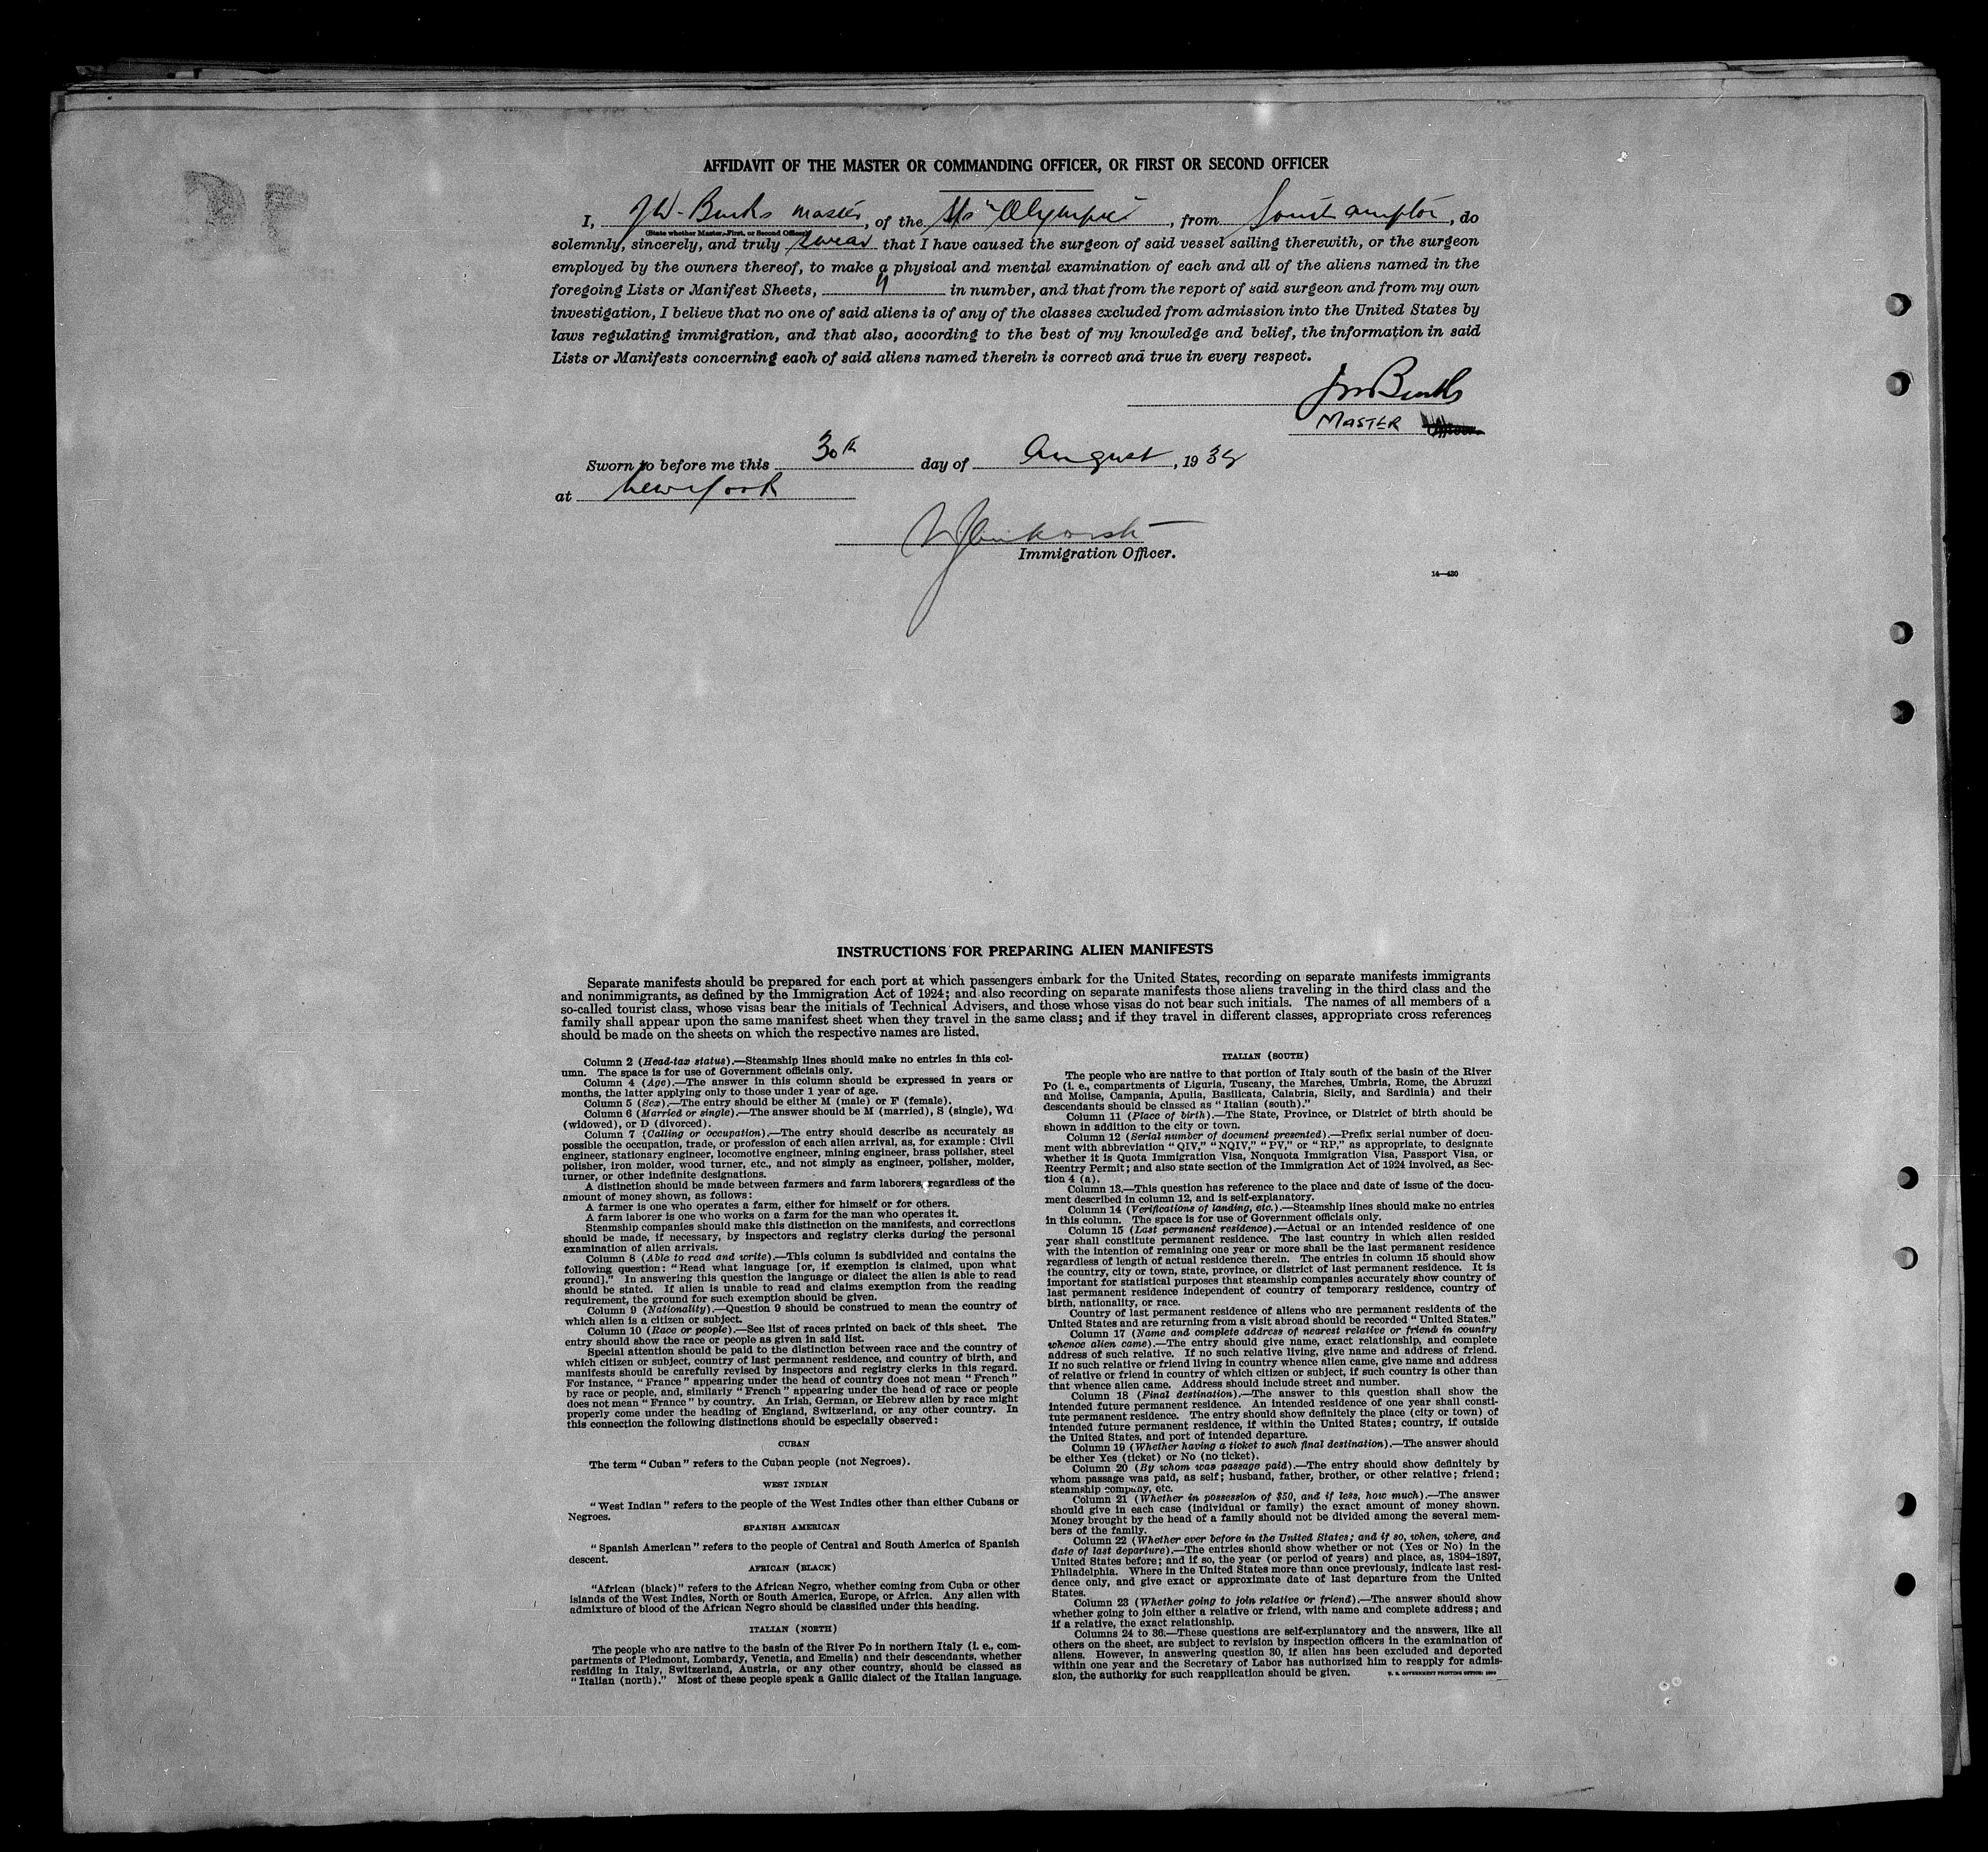 AFFIDAVIT OF THE MASTER OR COMMANDING OFFICER, OR FIRST OR SECOND OFFICER
I, J W. Binks Master, of the S/s "Olympic", from Southampton, do
(State whether Master, First, or Second Officer)
solemnly, sincerely, and truly swear that I have caused the surgeon of said vessel sailing therewith, or the surgeon
employed by the owners thereof, to make a physical and mental examination of each and all of the aliens named in the
foregoing Lists or Manifest Sheets, in number, and that from the report of said surgeon and from my own
investigation, I believe that no one of said aliens is of any of the classes excluded from admission into the United States by
laws regulating immigration, and that also, according to the best of my knowledge and belief, the information in said
Lists or Manifests concerning each of said aliens named therein is correct and true in every respect.
JW Binks
MASTER Officer.
Sworn to before me this 30th day of August, 19
at New York
Immigration Officer.
14—430
INSTRUCTIONS FOR PREPARING ALIEN MANIFESTS
Separate manifests should be prepared for each port at which passengers embark for the United States, recording on separate manifests immigrants
and nonimmigrants, as defined by the Immigration Act of 1924; and also recording on separate manifests those aliens traveling in the third class and the
so-called tourist class, whose visas bear the initials of Technical Advisers, and those whose visas do not bear such initials. The names of all members of a
family shall appear upon the same manifest sheet when they travel in the same class; and if they travel in different classes, appropriate cross references
should be made on the sheets on which the respective names are listed.
Column 2 (Head-tax status).—Steamship lines should make no entries in this col-
umn. The space is for use of Government officials only.
Column 4 (Age).—The answer in this column should be expressed in years or
months, the latter applying only to those under 1 year of age.
Column 5 (Sex).—The entry should be either M (male) or F (female).
Column 6 (Married or single).—The answer should be M (married), S (single), Wd
(widowed), or D (divorced).
Column 7 (Calling or occupation).—The entry should describe as accurately as
possible the occupation, trade, or profession of each alien arrival, as, for example: Civil
engineer, stationary engineer, locomotive engineer, mining engineer, brass polisher, steel
polisher, iron molder, wood turner, etc., and not simply as engineer, polisher, molder,
turner, or other indefinite designations.
A distinction should be made between farmers and farm laborers, regardless of the
amount of money shown, as follows:
A farmer is one who operates a farm, either for himself or for others.
A farm laborer is one who works on a farm for the man who operates it.
Steamship companies should make this distinction on the manifests, and corrections
should be made, if necessary, by inspectors and registry clerks during the personal
examination of alien arrivals.
Column 8 (Able to read and write).—This column is subdivided and contains the
following question: "Read what language [or, if exemption is claimed, upon what
ground]." In answering this question the language or dialect the alien is able to read
should be stated. If alien is unable to read and claims exemption from the reading
requirement, the ground for such exemption should be given.
Column 9 (Nationality).—Question 9 should be construed to mean the country of
which alien is a citizen or subject.
Column 10 (Race or people).—See list of races printed on back of this sheet. The
entry should show the race or people as given in said list.
Special attention should be paid to the distinction between race and the country of
which citizen or subject, country of last permanent residence, and country of birth, and
manifests should be carefully revised by inspectors and registry clerks in this regard.
For instance, "France" appearing under the head of country does not mean "French"
by race or people, and, similarly "French" appearing under the head of race or people
does not mean "France" by country. An Irish, German, or Hebrew alien by race might
properly come under the heading of England, Switzerland, or any other country. In
this connection the following distinctions should be especially observed:
CUBAN
The term "Cuban" refers to the Cuban people (not Negroes).
WEST INDIAN
"West Indian" refers to the people of the West Indies other than either Cubans or
Negroes.
SPANISH AMERICAN
"Spanish American" refers to the people of Central and South America of Spanish
descent.
AFRICAN (BLACK)
"African (black)" refers to the African Negro, whether coming from Cuba or other
islands of the West Indies, North or South America, Europe, or Africa. Any alien with
admixture of blood of the African Negro should be classified under this heading.
ITALIAN (NORTH)
The people who are native to the basin of the River Po in northern Italy (i. e., com-
partments of Piedmont, Lombardy, Venetia, and Emelia) and their descendants, whether
residing in Italy, Switzerland, Austria, or any other country, should be classed as
"Italian (north)." Most of these people speak a Gallic dialect of the Italian language.
ITALIAN (SOUTH)
The people who are native to that portion of Italy south of the basin of the River
Po (i. e., compartments of Liguria, Tuscany, the Marches, Umbria, Rome, the Abruzzi
and Molise, Campania, Apulia, Basilicata, Calabria, Sicily, and Sardinia) and their
descendants should be classed as "Italian (south)."
Column 11 (Place of birth).—The State, Province, or District of birth should be
shown in addition to the city or town.
Column 12 (Serial number of document presented).—Prefix serial number of docu-
ment with abbreviation "QIV," "NQIV," "PV," or "RP," as appropriate, to designate
whether it is Quota Immigration Visa, Nonquota Immigration Visa, Passport Visa, or
Reentry Permit; and also state section of the Immigration Act of 1924 involved, as Sec-
tion 4 (a).
Column 13.—This question has reference to the place and date of issue of the docu-
ment described in column 12, and is self-explanatory.
Column 14 (Verifications of landing, etc.).—Steamship lines should make no entries
in this column. The space is for use of Government officials only.
Column 15 (Last permanent residence).—Actual or an intended residence of one
year shall constitute permanent residence. The last country in which alien resided
with the intention of remaining one year or more shall be the last permanent residence
regardless of length of actual residence therein. The entries in column 15 should show
the country, city or town, state, province, or district of last permanent residence. It is
important for statistical purposes that steamship companies accurately show country of
last permanent residence independent of country of temporary residence, country of
birth, nationality, or race.
Country of last permanent residence of aliens who are permanent residents of the
United States and are returning from a visit abroad should be recorded "United States."
Column 17 (Name and complete address of nearest relative or friend in country
whence alien came).—The entry should give name, exact relationship, and complete
address of such relative. If no such relative living, give name and address of friend.
If no such relative or friend living in country whence alien came, give name and address
of relative or friend in country of which citizen or subject, if such country is other than
that whence alien came. Address should include street and number.
Column 18 (Final destination).—The answer to this question shall show the
intended future permanent residence. An intended residence of one year shall consti-
tute permanent residence. The entry should show definitely the place (city or town) of
intended future permanent residence, if within the United States; country, if outside
the United States, and port of intended departure.
Column 19 (Whether having a ticket to such final destination).—The answer should
be either Yes (ticket) or No (no ticket).
Column 20 (By whom was passage paid).—The entry should show definitely by
whom passage was paid, as self; husband, father, brother, or other relative; friend;
steamship company, etc.
Column 21 (Whether in possession of $50, and if less, how much).—The answer
should give in each case (individual or family) the exact amount of money shown.
Money brought by the head of a family should not be divided among the several mem-
bers of the family.
Column 22 (Whether ever before in the United States; and if so, when, where, and
date of last departure).—The entries should show whether or not (Yes or No) in the
United States before; and if so, the year (or period of years) and place, as, 1894-1897,
Philadelphia. Where in the United States more than once previously, indicate last resi-
dence only, and give exact or approximate date of last departure from the United
States.
Column 23 (Whether going to join relative or friend).—The answer should show
whether going to join either a relative or friend, with name and complete address; and
if a relative, the exact relationship.
Columns 24 to 36.—These questions are self-explanatory and the answers, like all
others on the sheet, are subject to revision by inspection officers in the examination of
aliens. However, in answering question 30, if alien has been excluded and deported
within one year and the Secretary of Labor has authorized him to reapply for admis-
sion, the authority for such reapplication should be given.
U. S. GOVERNMENT PRINTING OFFICE: